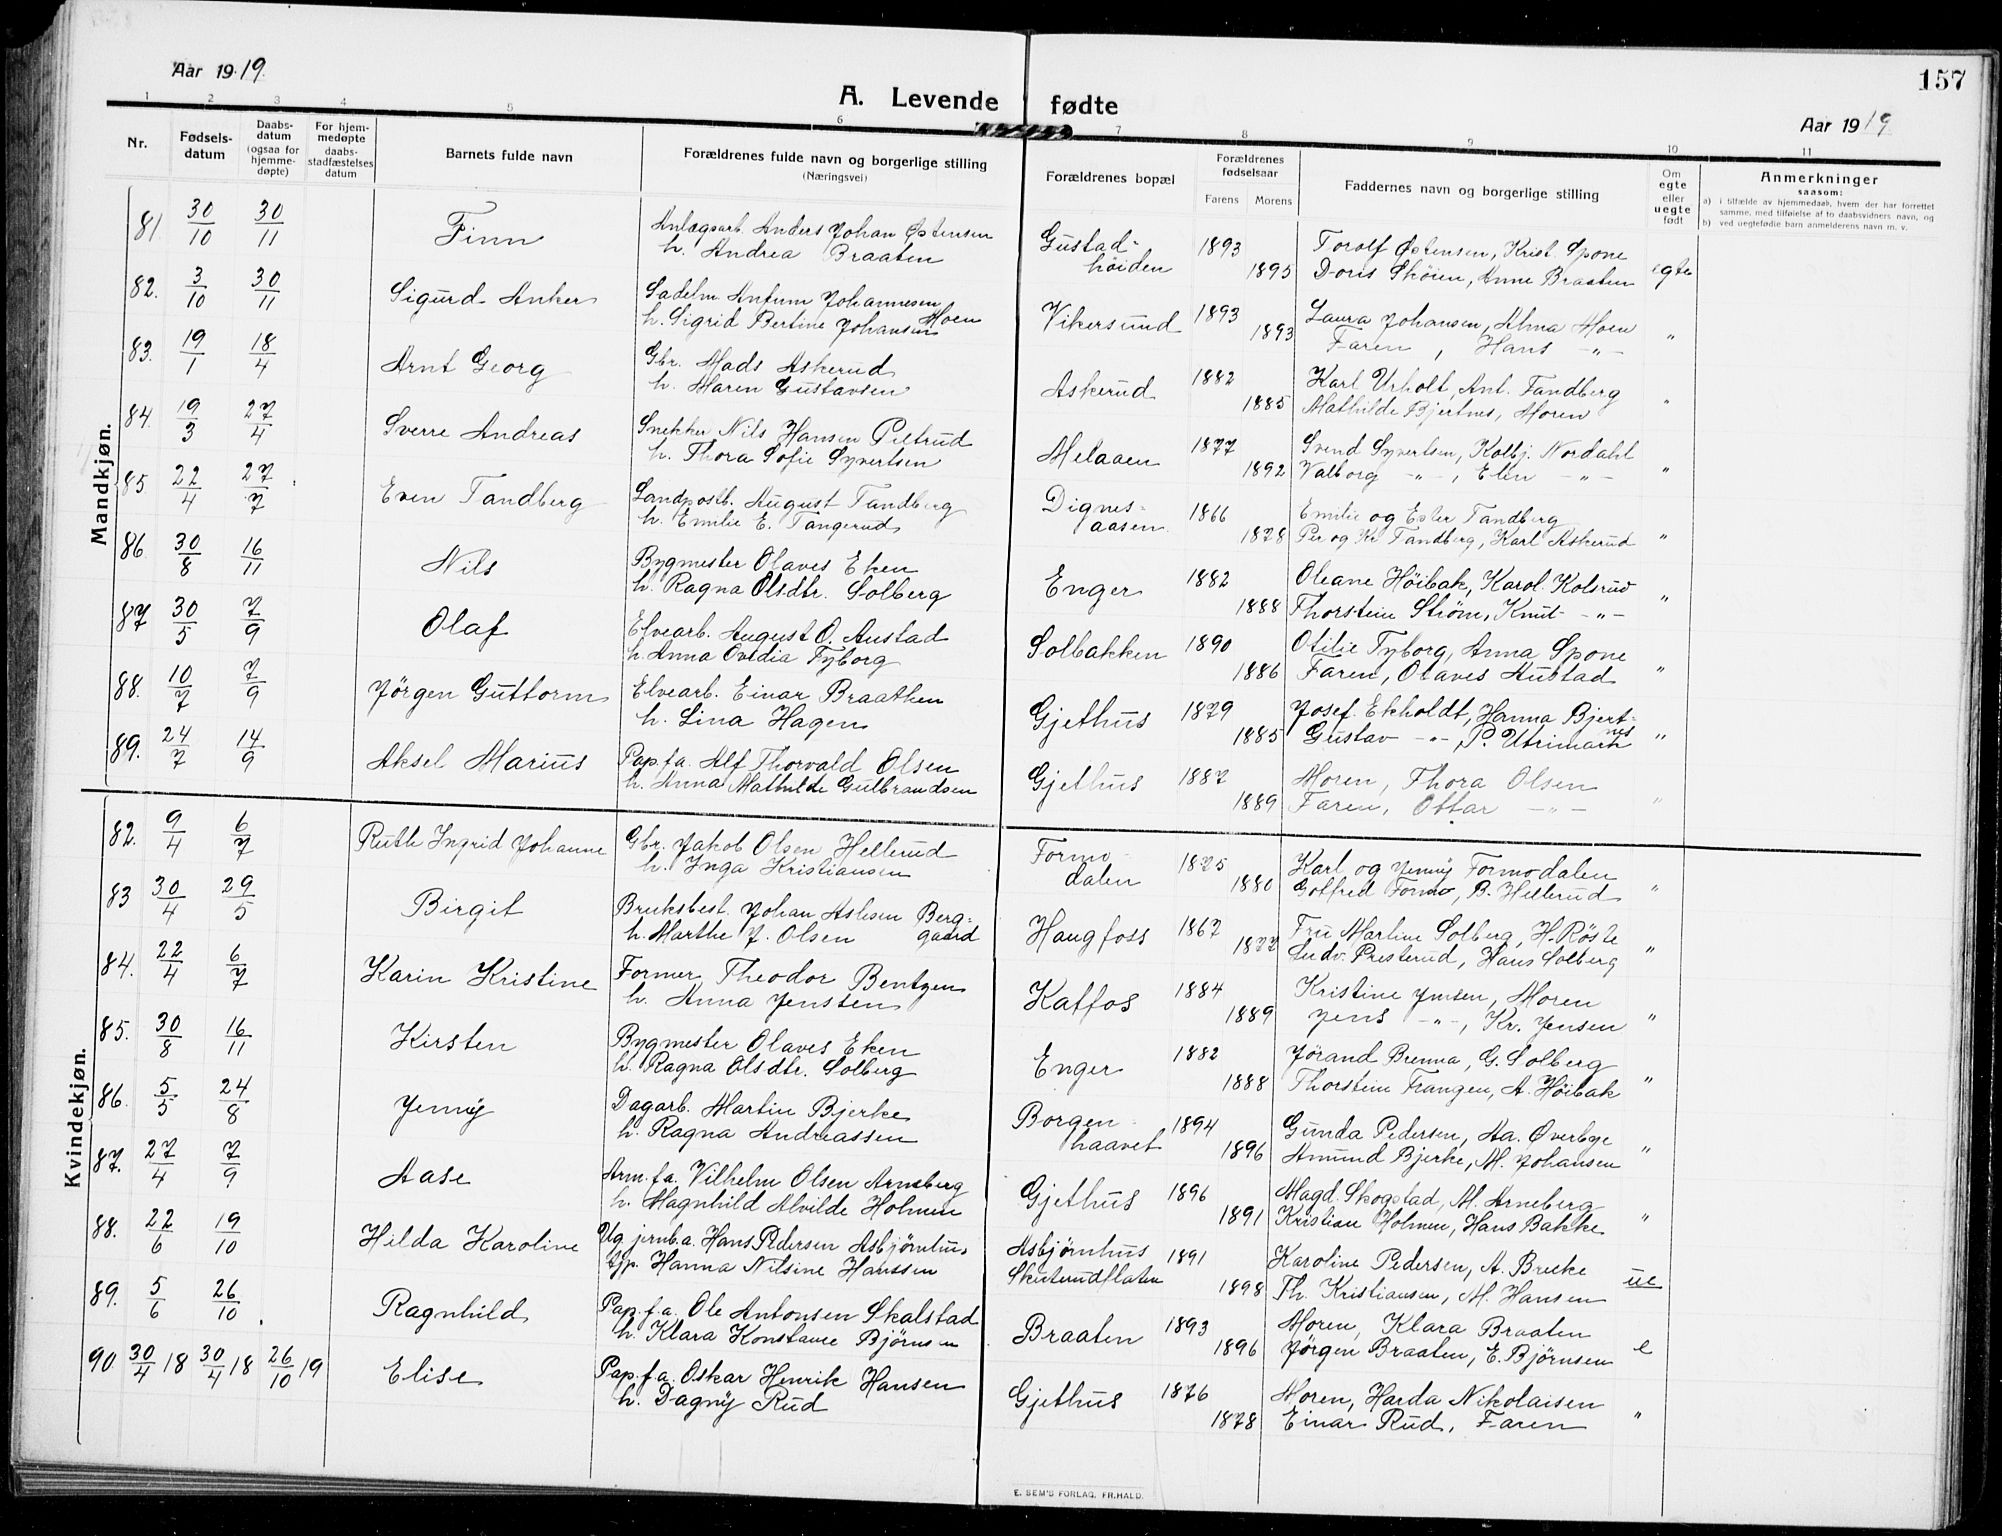 Aar 1919.
157
A. Levende fødte
Aar 1919
1 2 3 4 5 6 7 8 9 10 11
Nr.
Fødsels-
datum
Daabs-
datum
(ogsaa for
hjemme-
døpte)
For hjem-
medøpte
daabs-
stadfæstelses
datum
Barnets fulde navn
Forældrenes fulde navn og borgerlige stilling
(Næringsvei)
Forældrenes bopæl
Forældrenes
fødselsaar
Farens Morens
Faddernes navn og borgerlige stilling
Om
egte
eller
uegte
født
Anmerkninger
saasom:
a) i tilfælde av hjemmedaab, hvem der har forrettet
samme, med tilføielse af to daabsvidners navn, og
b) ved uegtefødte barn anmelderens navn m. v.
Mandkjøn.
81 30/10 30/11 Finn Anlægsarb. Anders Johan Østensen Gustad- 1893 Torolf Østensen, Krist. Spone
h. Andrea Braaten høiden 1895 Doris Skøien, Anne Braaten egte
82. 3/10 30/11 Sigurd Anker Sadelm. Antum Johannesen Moen Vikersund 1893 Laura Johansen, Alma Moen
h. Sigrid Bertine Johansen 1893 Faren, Hans -"- "
83. 19/1 18/4 Arnt Georg Gbr. Mads Askerud Askerud 1882 Karl Urholt, Ant. Tandberg
h. Maren Gustavsen 1885 Mathilde Bjertnes, Moren "
84. 19/3 27/4 Sverre Andreas Snekker Nils Hansen Piltrud Melaaen 1877 Svend Syvertsen, Kolbj. Nordahl
h. Thora Sofie Syvertsen 1892 Valborg -"-, Elin -"- "
85 22/4 27/7 Even Tandberg Landpostb. August Tandberg Dignes- 1866 Emilie og Ester Tandberg
h. Emilie E. Tangerud aasen 1878 Per og Kr Tandberg, Karl Askerud "
86. 30/8 16/11 Nils Bygmester Olaves Eken Enger 1882 Oleane Høibak, Karol. Kolsrud
h. Ragna Olsdtr. Solberg 1888 Thorstein Strøm, Knut -"- "
87 30/5 7/9 Olaf Elvearb. August O. Austad Solbakken 1890 Otilie Fyborg, Anna Spone
h. Anna Ovidia Fyborg 1886 Faren, Olaves Austad "
88. 10/7 7/9 Jørgen Guttorm Elvearb. Einar Braathen Gjethus 1879 Josef Ekholdt, Hanna Bjert-
h. Lina Hagen 1885 Gustav -"-, P. Utrimark nes "
89. 24/7 14/9 Aksel Marius Pap.fa. Alf Thorvald Olsen Gjethus 1887 Moren, Thora Olsen
h. Anna Mathilde Gulbrandsen 1889 Faren, Ottar -"- "
Kvindekjøn.
82. 9/4 6/7 Ruth Ingrid Johanne Gbr. Jakob Olsen Hellerud Formo- 1875 Karl og Jenny Formodalen
h. Inga Kristiansen dalen 1880 Gotfred Formo, B. Hellerud "
83 30/4 29/5 Birgit Bruksbest. Johan Aslesen Berg- Haugfoss 1867 Fru Martine Solberg, H. Røste
h. Marthe J. Olsen gaard 1877 Ludv. Presterud, Hans Solberg "
84. 22/4 6/7 Karin Kristine Former Theodor Bentzen Katfos 1884 Kristine Jensen, Moren
h. Anna Jensten 1889 Jens -"-, Kr. Jensen "
85. 30/8 16/11 Kirsten Bygmester Olaves Eken Enger 1882 Jørand Brenna, G. Solberg
h. Ragna Olsdtr. Solberg 1888 Thorstein Frangen, A. Høibak "
86. 5/5 24/8 Jenny Dagarb. Martin Bjerke Borgen- 1894 Gunda Pedersen, Aa. Øverbye
h. Ragna Andreassen haavet 1896 Amund Bjerke, M. Johansen "
87. 27/4 7/9 Aase Arm.fa. Vilhelm Olsen Arneberg Gjethus 1896 Magd. Skogstad, M. Arneberg
h. Magnhild Alvilde Holmen 1891 Kristian Holmen, Hans Bakke "
88. 22/6 19/10 Hilda Karoline Ug. jernb.a. Hans Pedersen Asbjørnhus Asbjørnhus 1891 Karoline Pedersen, A. Brecke
Gp. Hanna Nilsine Hanssen Skuterudflaten 1898 Th. Kristiansen, M. Hansen ue
89. 5/6 26/10 Ragnhild Pap.f.a. Ole Antonsen Skalstad Braaten 1893 Moren, Klara Braaten
h. Klara Konstance Bjørnsen 1896 Jørgen Braaten, E. Bjørnsen e
90. 30/4 18 30/4 18 26/10 19 Elise Pap.f.a. Oskar Henrik Hansen Gjethus 1876 Moren, Harda Nikolaisen
h. Dagny Rud 1878 Einar Rud, Faren "
E. SEM'S FORLAG, FR.HALD.